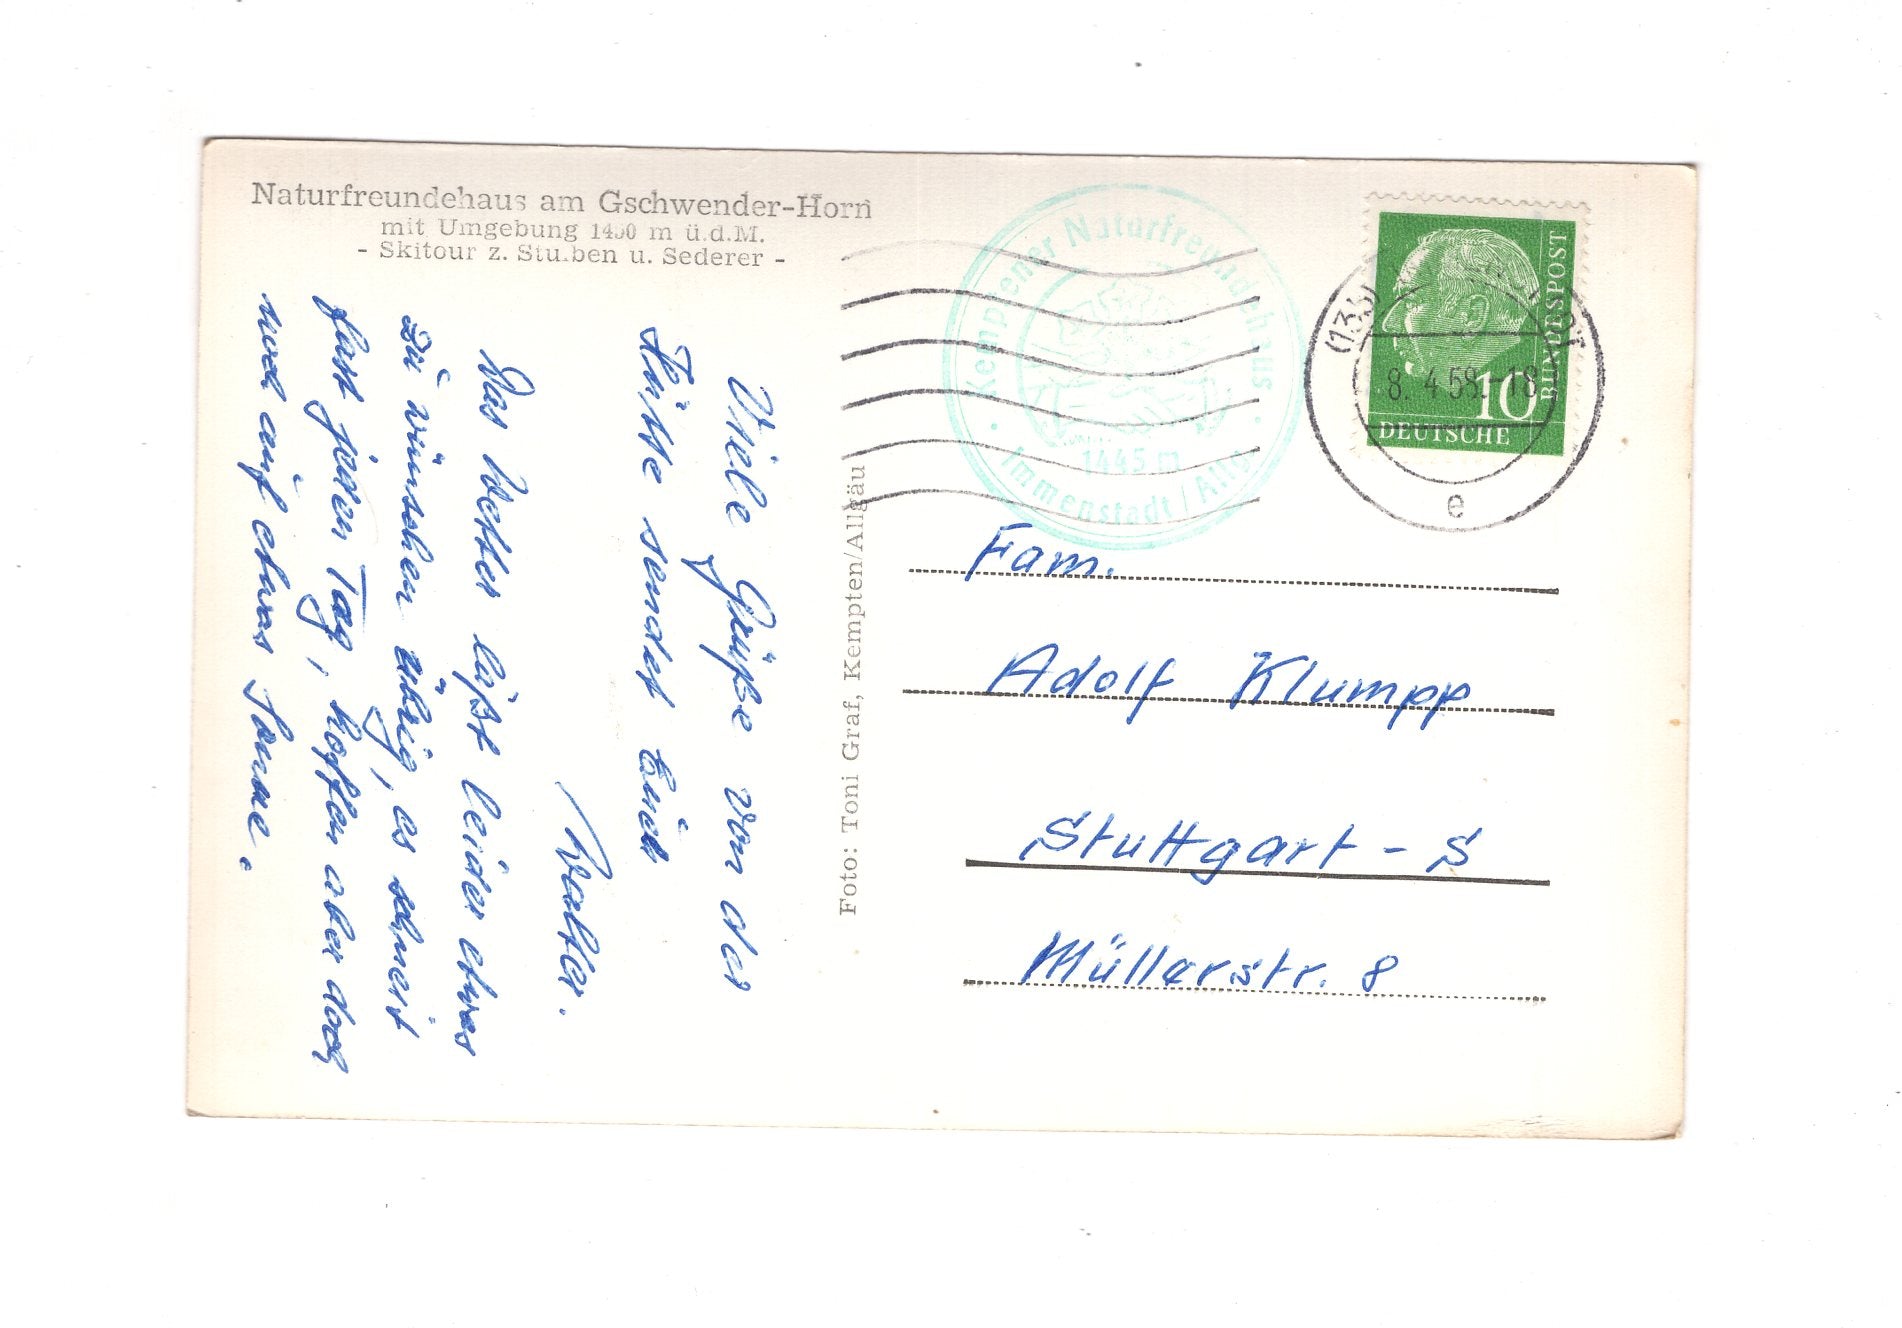 Naturfreundehaus am Gschwender-Horn
mit Umgebung 1450 m ü.d.M.
- Skitour z. Stuiben u. Sederer -
Viele Grüße von der
Hütte sendet Euch
Walter.
Das Wetter läßt leider etwas
zu wünschen übrig, es schneit
fast jeden Tag, hoffen aber doch
noch auf etwas Sonne.
Foto: Toni Graf, Kempten/Allgäu
Kemptener Naturfreundehaus
1445 m
Immenstadt / Allg.
8. 4. 58.-18
e
10
DEUTSCHE
BUNDESPOST
Fam.
Adolf Klumpp
Stuttgart - S
Müllerstr. 8